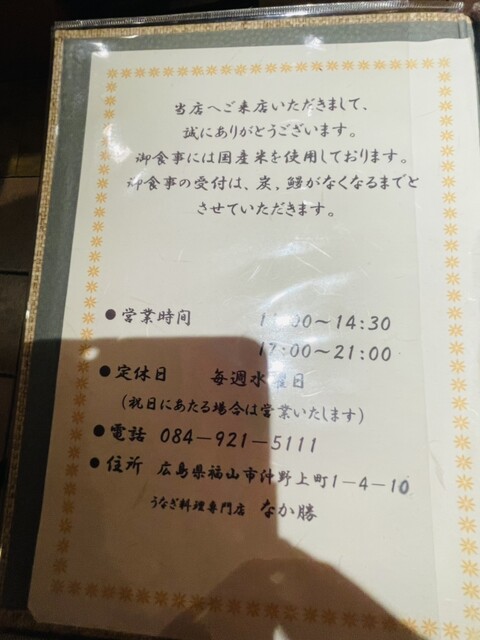 当店へご来店いただきまして、
誠にありがとうございます。
御食事には国産米を使用しております。
御食事の受付は、炭、鰻がなくなるまでと
させていただきます。
●営業時間 11:00〜14:30
17:00〜21:00
●定休日 毎週水曜日
(祝日にあたる場合は営業いたします)
●電話 084-921-5111
●住所 広島県福山市沖野上町1-4-10
うなぎ料理専門店 なか勝